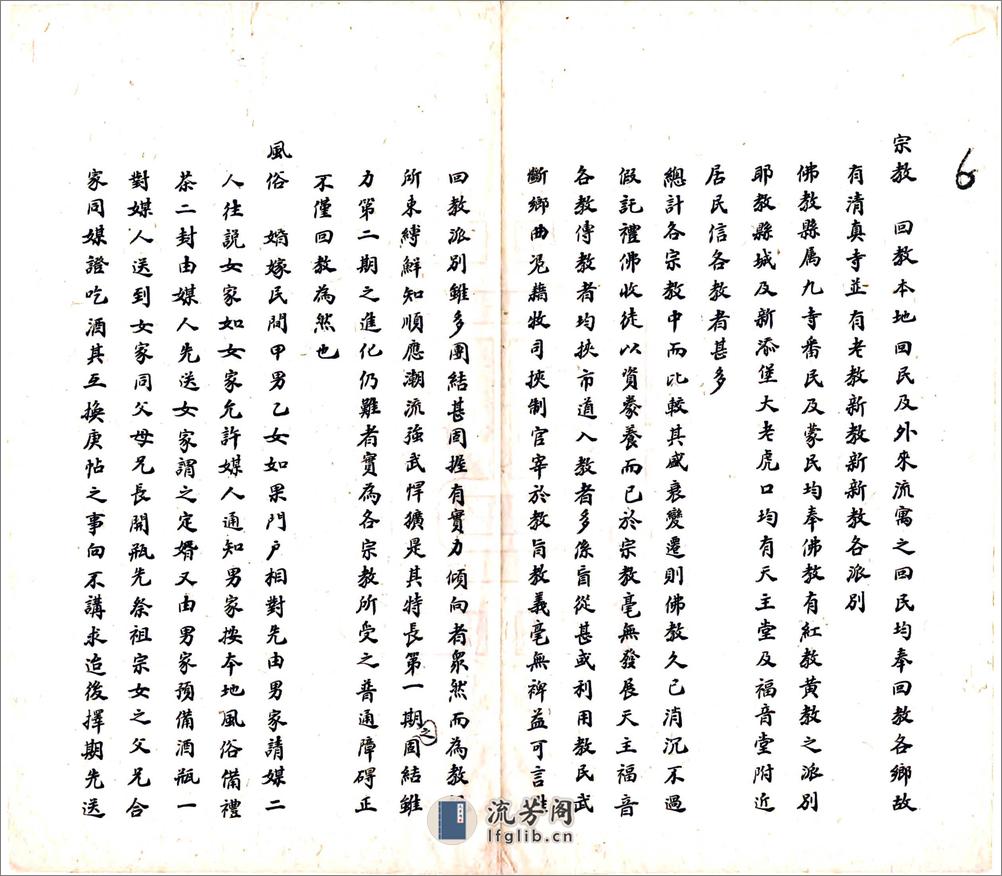 6
宗教　回教本地回民及外來流寓之回民均奉回教各鄉故
有清真寺並有老教新教新新教各派別
佛教縣属九寺番民及蒙民均奉佛教有紅教黄教之派別
耶教縣城及新添堡大老虎口均有天主堂及福音堂附近
居民信各教者甚多
總計各宗教中而比較其盛衰變遷則佛教久已消沉不過
假託禮佛收徒以資豢養而已於宗教毫無發展天主福音
各教傳教者均挾市道入教者多係盲從甚或利用教民武
斷鄉曲凭藉牧司挾制官宰於教旨教義毫無裨益可言
回教派別雖多團結甚固握有實力傾向者衆然而為教
所束縛鮮知順應潮流強武悍獷是其特長第一期之固結雖
力第二期之進化仍難者實為各宗教所受之普通障碍正
不僅回教為然也
風俗　婚嫁民間甲男乙女如果門户相對先由男家請媒二
人往説女家如女家允許媒人通知男家按本地風俗備禮
茶二封由媒人先送女家謂之定婚又由男家預備酒瓶一
對媒人送到女家同父母兄長開瓶先祭祖宗女之父兄合
家同媒證吃酒其互換庚帖之事向不講求迨後擇期先送
流芳阁
lfglib.cn